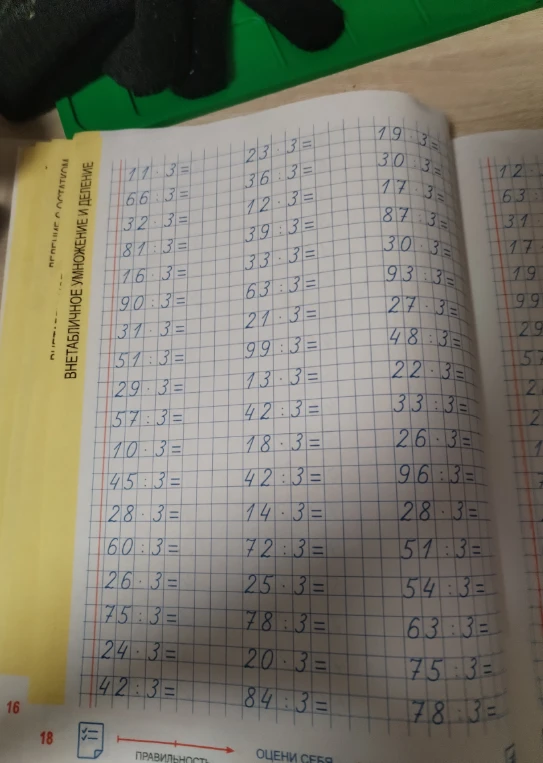 ВНЕТАБЛИЧНОЕ УМНОЖЕНИЕ И ДЕЛЕНИЕ
11 · 3=
66 : 3=
32 · 3=
81 : 3=
16 · 3=
90 : 3=
31 · 3=
51 : 3=
29 · 3=
57 : 3=
10 · 3=
45 : 3=
28 · 3=
60 : 3=
26 · 3=
75 : 3=
24 · 3=
42 : 3=
23 · 3=
36 : 3=
12 · 3=
39 : 3=
33 · 3=
63 : 3=
21 · 3=
99 : 3=
13 · 3=
42 : 3=
18 · 3=
42 : 3=
14 · 3=
72 : 3=
25 · 3=
78 : 3=
20 · 3=
84 : 3=
19 · 3=
30 : 3=
17 · 3=
87 : 3=
30 · 3=
93 : 3=
27 · 3=
48 : 3=
22 · 3=
33 : 3=
26 · 3=
96 : 3=
28 · 3=
51 : 3=
54 : 3=
63 : 3=
75 : 3=
78 : 3=
12
63
31
17
19
99
29
16
18
ПРАВИЛЬНОСТЬ
ОЦЕНИ СЕБЯ